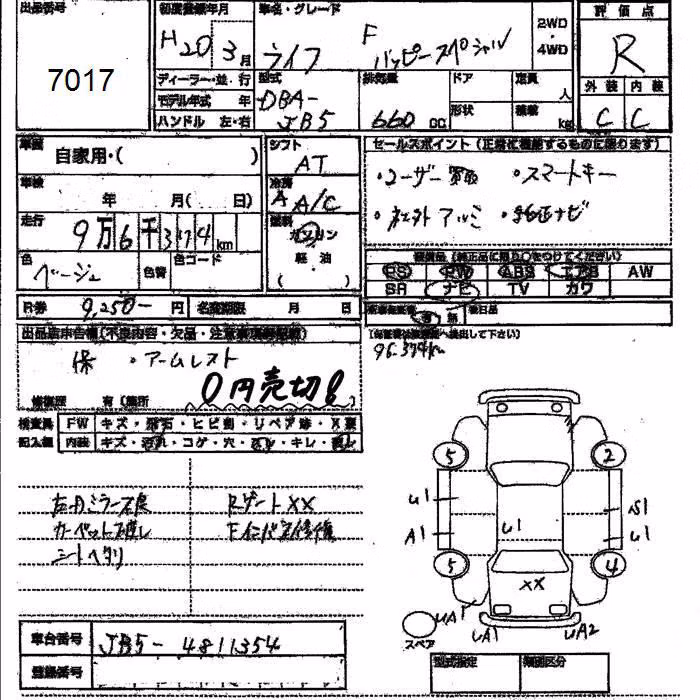 出品番号
7017
初度登録年月
H20 3月
車名・グレード
F
ライフ ハッピースペシャル
2WD
・
4WD
評価点
R
外装 内装
C C
ディーラー・並・行
モデル年式 年
ハンドル 左・右
型式
DBA-
JB5
排気量
660 CC
ドア
形状
定員
人
積載
kg
車歴
自家用・( )
車検
年 月( 日)
走行
9万6千374km
色
ベージュ
色替
色コード
シフト
AT
冷房
A A/C
燃料
ガソリン
軽油
( )
セールスポイント(正常に機能するものに限ります)
・ユーザー買取 ・スマートキー
・社外アルミ ・純正ナビ
装備品(純正品に限り○をつけてください)
PS PW ABS エアB AW
SR ナビ TV カワ
有 無
後日品
96.374km
R券 9,250- 円
名変期限 月 日
出品店申告欄(不良内容・欠品・注意事項等記載)
保 ・アームレスト
0円売切!
修復歴 有(箇所
検査員
記入欄
FW キズ・飛石・ヒビ割・リペア跡・X要
内装 キズ・汚れ・コゲ・穴・スレ・キレ・
左ドアミラー不良
カーペット汚し
シートヘタリ
Rゲート XX
Fインパネ修復
5 2
U1
A1
U1
S1
U1
5 4
XX
UA1
UA1
UA2
スペア
車台番号 JB5-4811354
登録番号
型式指定 類別区分